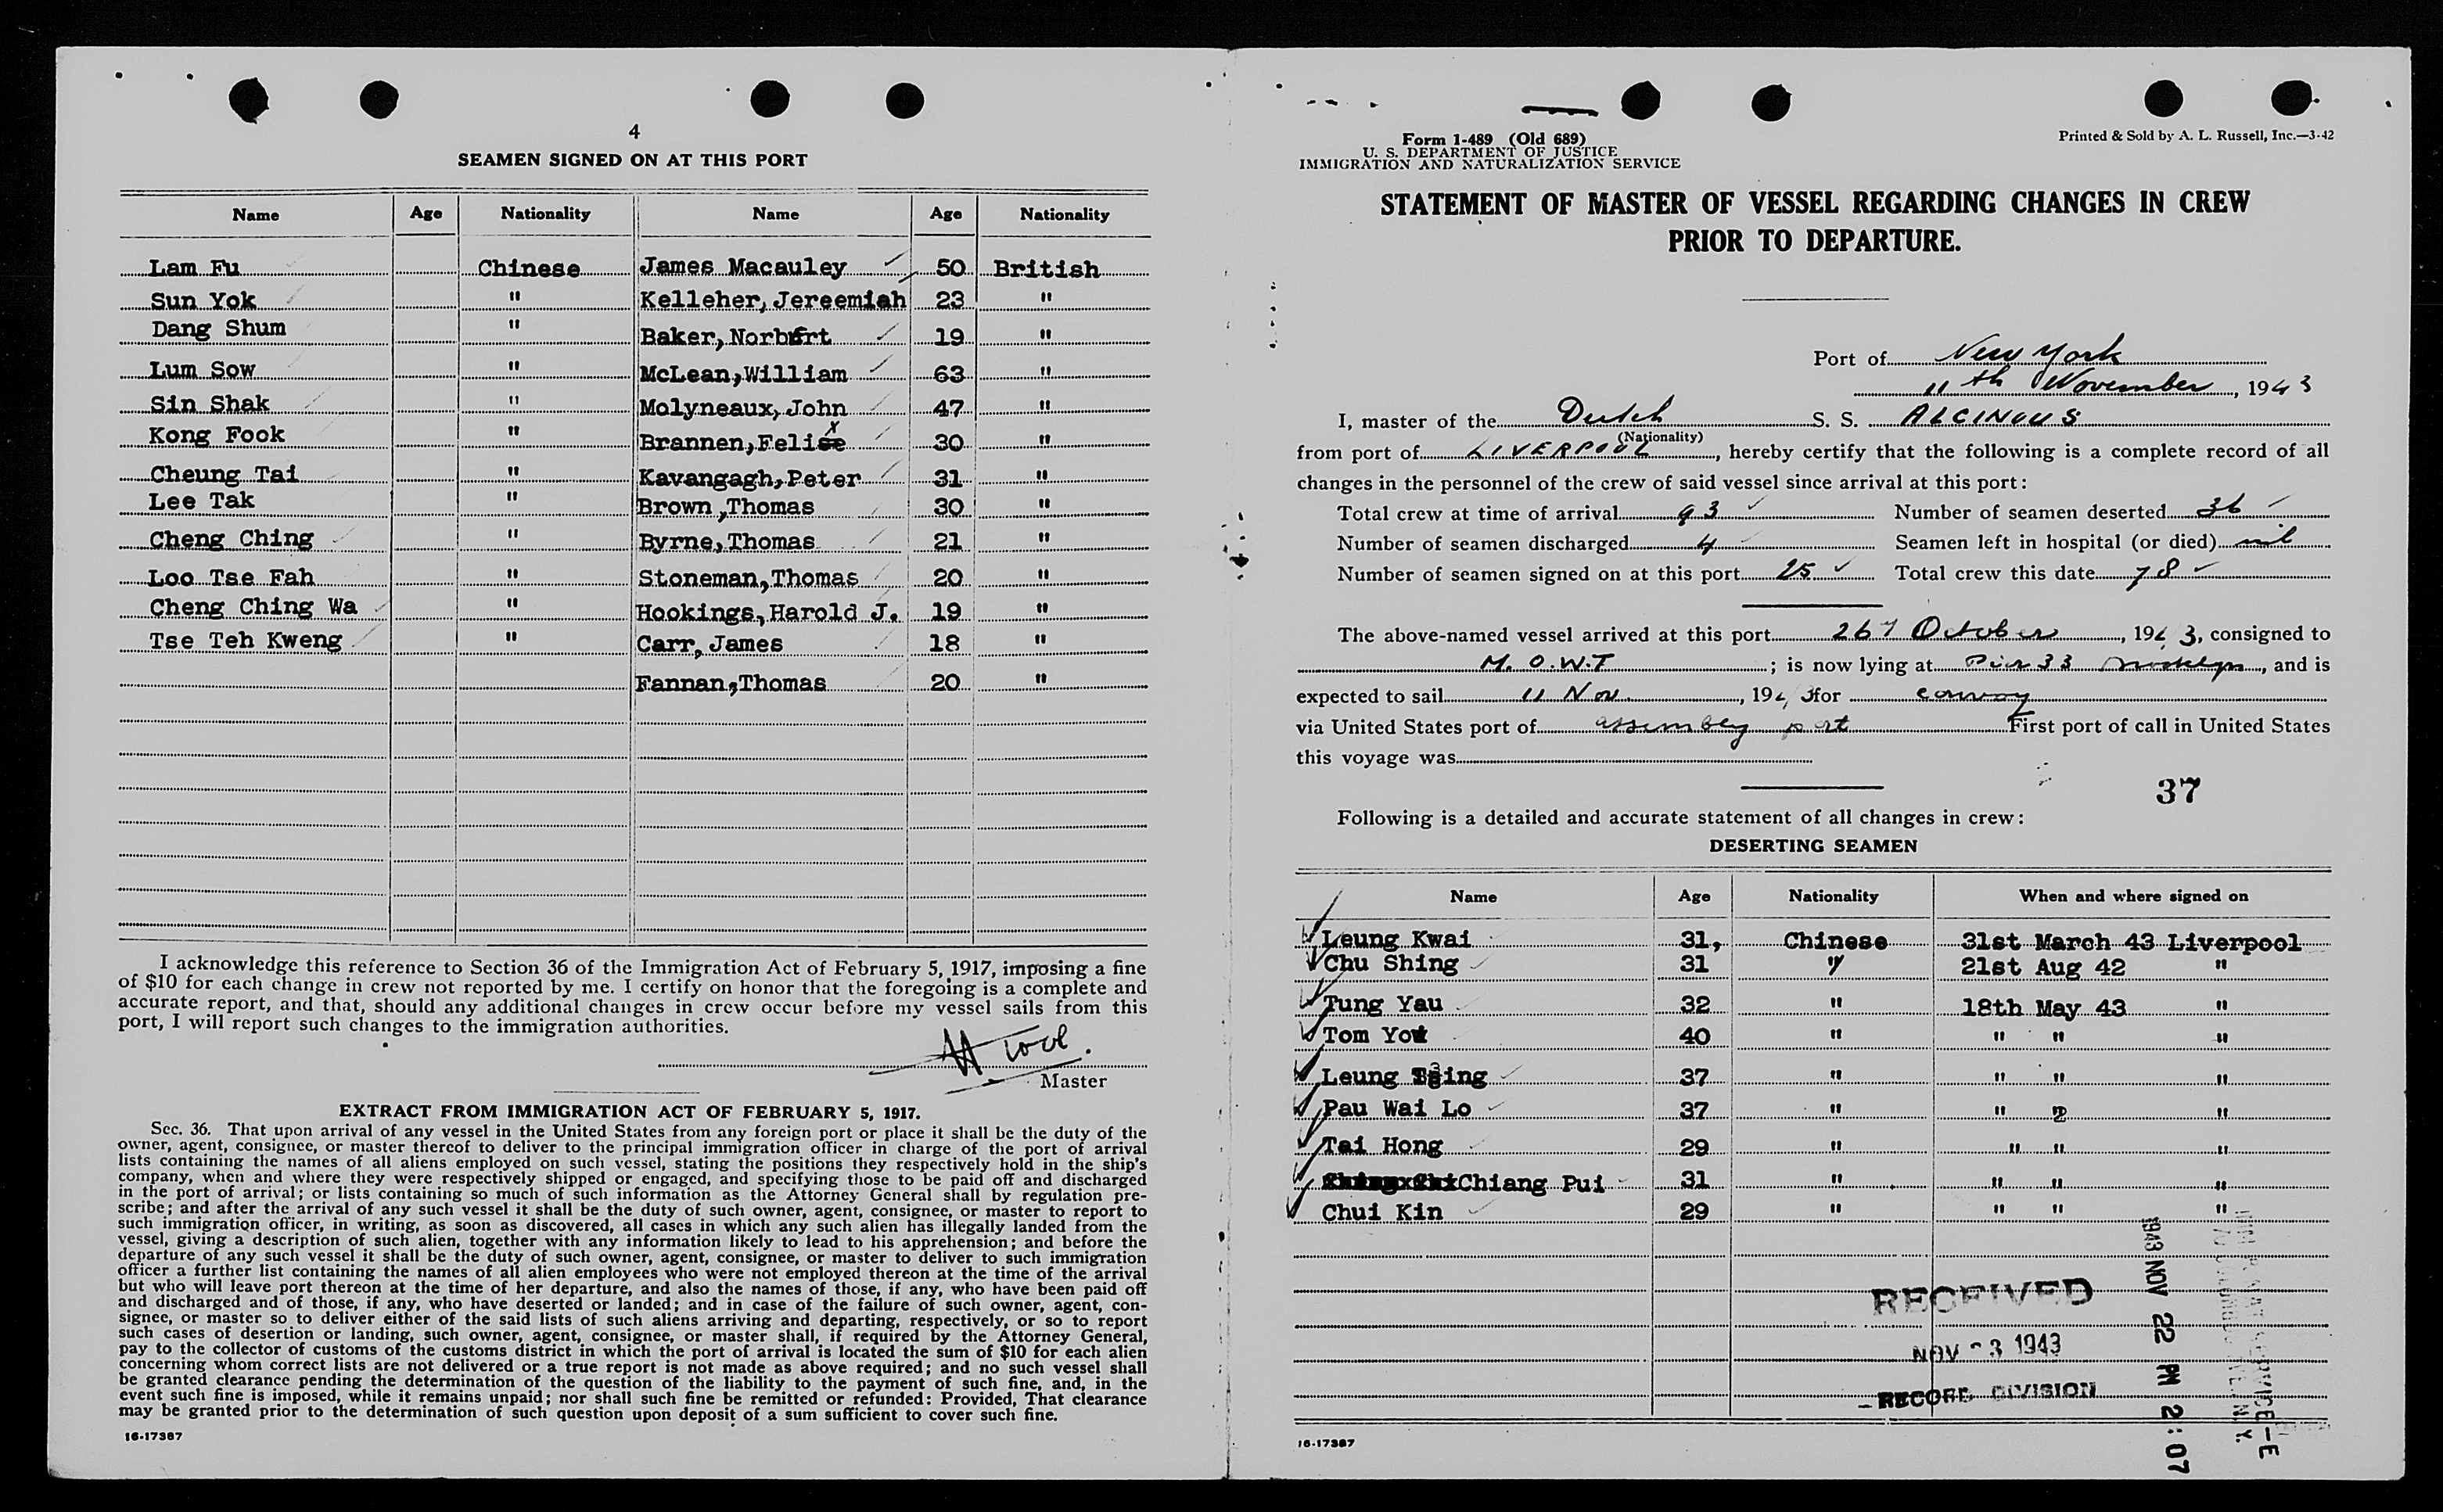 4
SEAMEN SIGNED ON AT THIS PORT
Name Age Nationality Name Age Nationality
Lam Fu Chinese James Macauley 50 British
Sun Yok " Kelleher, Jereemiah 23 "
Dang Shum " Baker, Norbert 19 "
Lum Sow " McLean, William 63 "
Sin Shak " Molyneaux, John 47 "
Kong Fook " Brannen, Felix 30 "
Cheung Tai " Kavangagh, Peter 31 "
Lee Tak " Brown, Thomas 30 "
Cheng Ching " Byrne, Thomas 21 "
Loo Tse Fah " Stoneman, Thomas 20 "
Cheng Ching Wa " Hookings, Harold J. 19 "
Tse Teh Kweng " Carr, James 18 "
Fannan, Thomas 20 "
I acknowledge this reference to Section 36 of the Immigration Act of February 5, 1917, imposing a fine
of $10 for each change in crew not reported by me. I certify on honor that the foregoing is a complete and
accurate report, and that, should any additional changes in crew occur before my vessel sails from this
port, I will report such changes to the immigration authorities.
Master
EXTRACT FROM IMMIGRATION ACT OF FEBRUARY 5, 1917.
Sec. 36. That upon arrival of any vessel in the United States from any foreign port or place it shall be the duty of the
owner, agent, consignee, or master thereof to deliver to the principal immigration officer in charge of the port of arrival
lists containing the names of all aliens employed on such vessel, stating the positions they respectively hold in the ship's
company, when and where they were respectively shipped or engaged, and specifying those to be paid off and discharged
in the port of arrival; or lists containing so much of such information as the Attorney General shall by regulation pre-
scribe; and after the arrival of any such vessel it shall be the duty of such owner, agent, consignee, or master to report to
such immigration officer, in writing, as soon as discovered, all cases in which any such alien has illegally landed from the
vessel, giving a description of such alien, together with any information likely to lead to his apprehension; and before the
departure of any such vessel it shall be the duty of such owner, agent, consignee, or master to deliver to such immigration
officer a further list containing the names of all alien employees who were not employed thereon at the time of the arrival
but who will leave port thereon at the time of her departure, and also the names of those, if any, who have been paid off
and discharged and of those, if any, who have deserted or landed; and in case of the failure of such owner, agent, con-
signee, or master so to deliver either of the said lists of such aliens arriving and departing, respectively, or so to report
such cases of desertion or landing, such owner, agent, consignee, or master shall, if required by the Attorney General,
pay to the collector of customs of the customs district in which the port of arrival is located the sum of $10 for each alien
concerning whom correct lists are not delivered or a true report is not made as above required; and no such vessel shall
be granted clearance pending the determination of the question of the liability to the payment of such fine, and, in the
event such fine is imposed, while it remains unpaid; nor shall such fine be remitted or refunded: Provided, That clearance
may be granted prior to the determination of such question upon deposit of a sum sufficient to cover such fine.
16-17387
Form 1-489 (Old 689)
U. S. DEPARTMENT OF JUSTICE
IMMIGRATION AND NATURALIZATION SERVICE
Printed & Sold by A. L. Russell, Inc.—3-42
STATEMENT OF MASTER OF VESSEL REGARDING CHANGES IN CREW
PRIOR TO DEPARTURE.
Port of New York
11th November, 1943
I, master of the Dutch S. S. ALCINOUS
(Nationality)
from port of LIVERPOOL, hereby certify that the following is a complete record of all
changes in the personnel of the crew of said vessel since arrival at this port:
Total crew at time of arrival 93 Number of seamen deserted 36
Number of seamen discharged 4 Seamen left in hospital (or died) nil
Number of seamen signed on at this port 25 Total crew this date 78
The above-named vessel arrived at this port 26 October, 1943, consigned to
M.O.W.T ; is now lying at Pier 33 Brooklyn, and is
expected to sail 11 Nov., 1943 for convoy
via United States port of assembly port First port of call in United States
this voyage was
37
Following is a detailed and accurate statement of all changes in crew:
DESERTING SEAMEN
Name Age Nationality When and where signed on
Leung Kwai 31, Chinese 31st March 43 Liverpool
Chu Shing 31 " 21st Aug 42 "
Tung Yau 32 " 18th May 43 "
Tom 40 " " " "
Leung 37 " " " "
Pau Wai Lo 37 " " 2 "
Tai Hong 29 " " " "
Chiang Pui 31 " " " "
Chui Kin 29 " " " "
RECEIVED
NOV 3 1943
RECORD DIVISION
1943 NOV 22 PM 2:07
16-17387